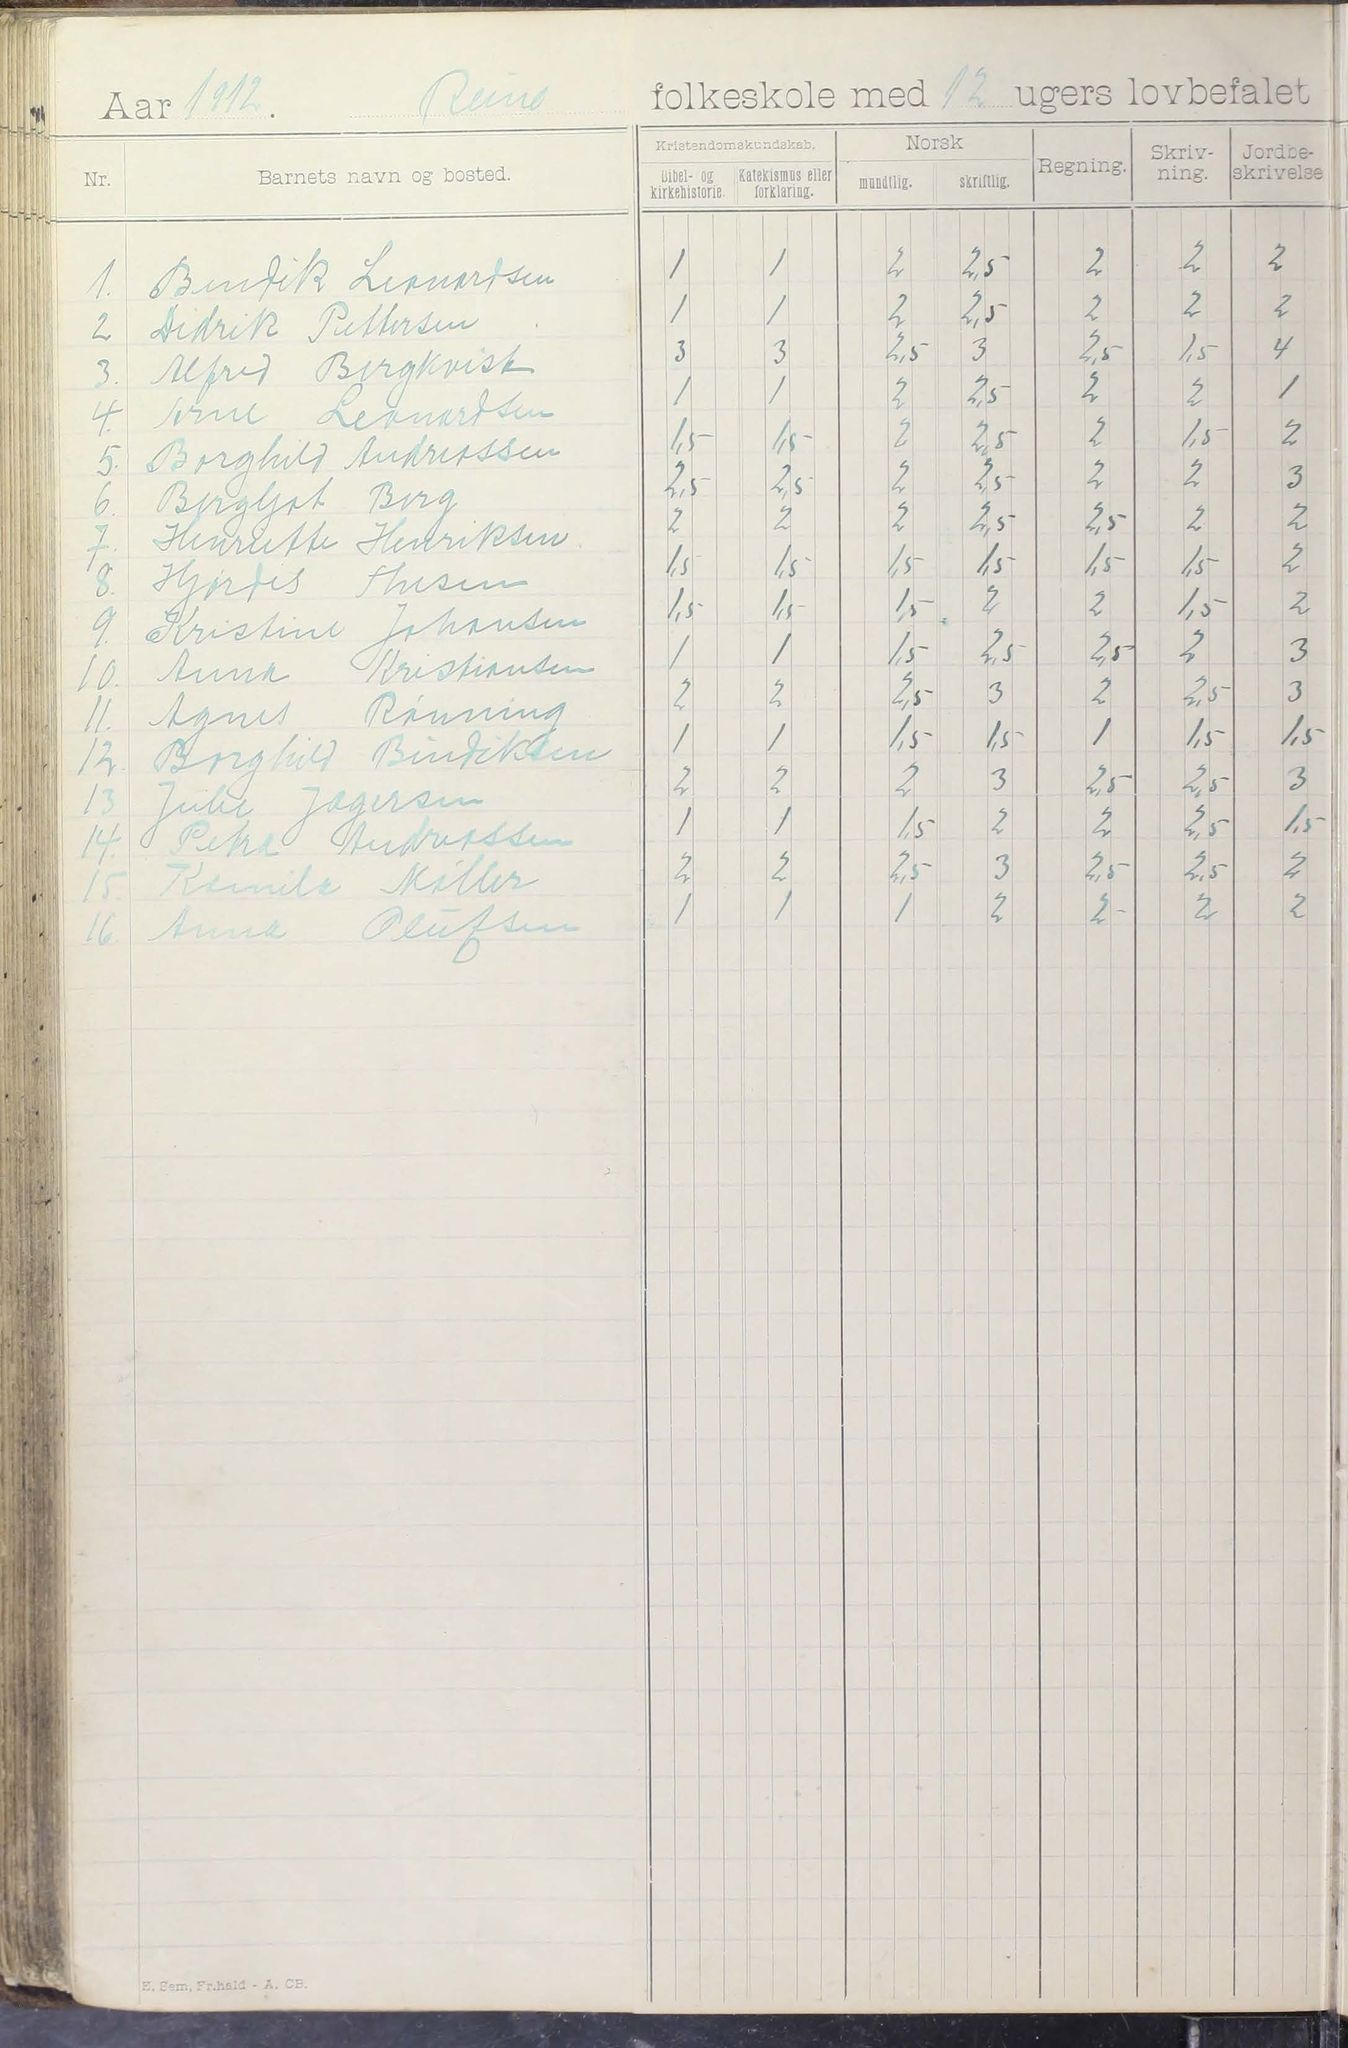 Aar 1912. Reinø folkeskole med 12 ugers lovbefalet
Nr. Barnets navn og bosted. Kristendomskundskab. Norsk Regning. Skriv-ning. Jordbe-skrivelse
Bibel- og kirkehistorie. Katekismus eller forklaring. mundtlig. skriftlig.
1. Bendik Leonardsen 1 1 2 2,5 2 2 2
2 Didrik Pettersen 1 1 2 2,5 2 2 2
3. Alfred Bergkvist 3 3 2,5 3 2,5 1,5 4
4. Arne Leonardsen 1 1 2 2,5 2 2 1
5. Borghild Andreassen 1,5 1,5 2 2,5 2 1,5 2
6. Bergljot Berg 2,5 2,5 2 2,5 2 2 3
7. Henriette Henriksen 2 2 2 2,5 2,5 2 2
8. Hjørdis Thesen 1,5 1,5 1,5 1,5 1,5 1,5 2
9. Kristine Johansen 1,5 1,5 1,5 2 2 1,5 2
10. Anna Kristiansen 1 1 1,5 2,5 2,5 2 3
11. Agnes Rønning 2 2 2,5 3 2 2,5 3
12. Borghild Bendiksen 1 1 1,5 1,5 1 1,5 1,5
13 Julie Jægersen 2 2 2 3 2,5 2,5 3
14. Petra Andreassen 1 1 1,5 2 2 2,5 1,5
15. Kamila Møller 2 2 2,5 3 2,5 2,5 2
16. Anna Olufsen 1 1 1 2 2- 2 2
E. Sem, Fr.hald - A. CB.